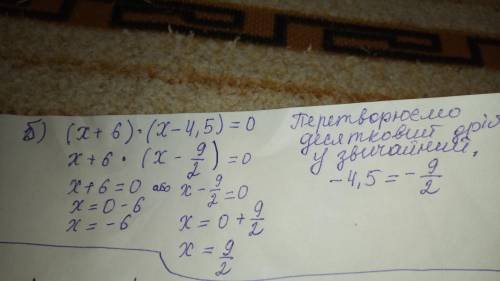 б) (x+6)·(x-4,5)=0
x+6·(x-9/2)=0
x+6=0 або x-9/2=0
x=0-6
x=-6
x=0+9/2
x=9/2
Перетворюємо
десятковий дріб
у звичайний.
-4,5=-9/2